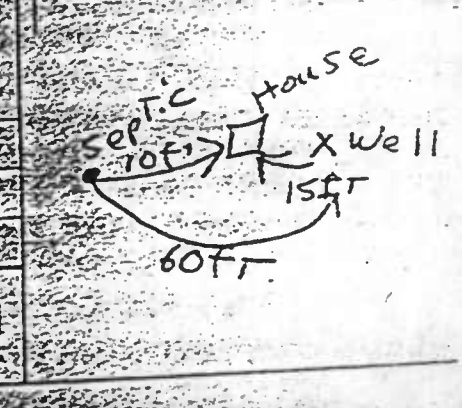 House
Septic
10ft
X Well
15ft
60ft